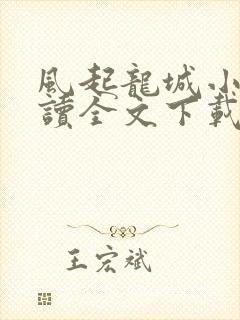 風起龍城小
讀全文下載
王宏斌